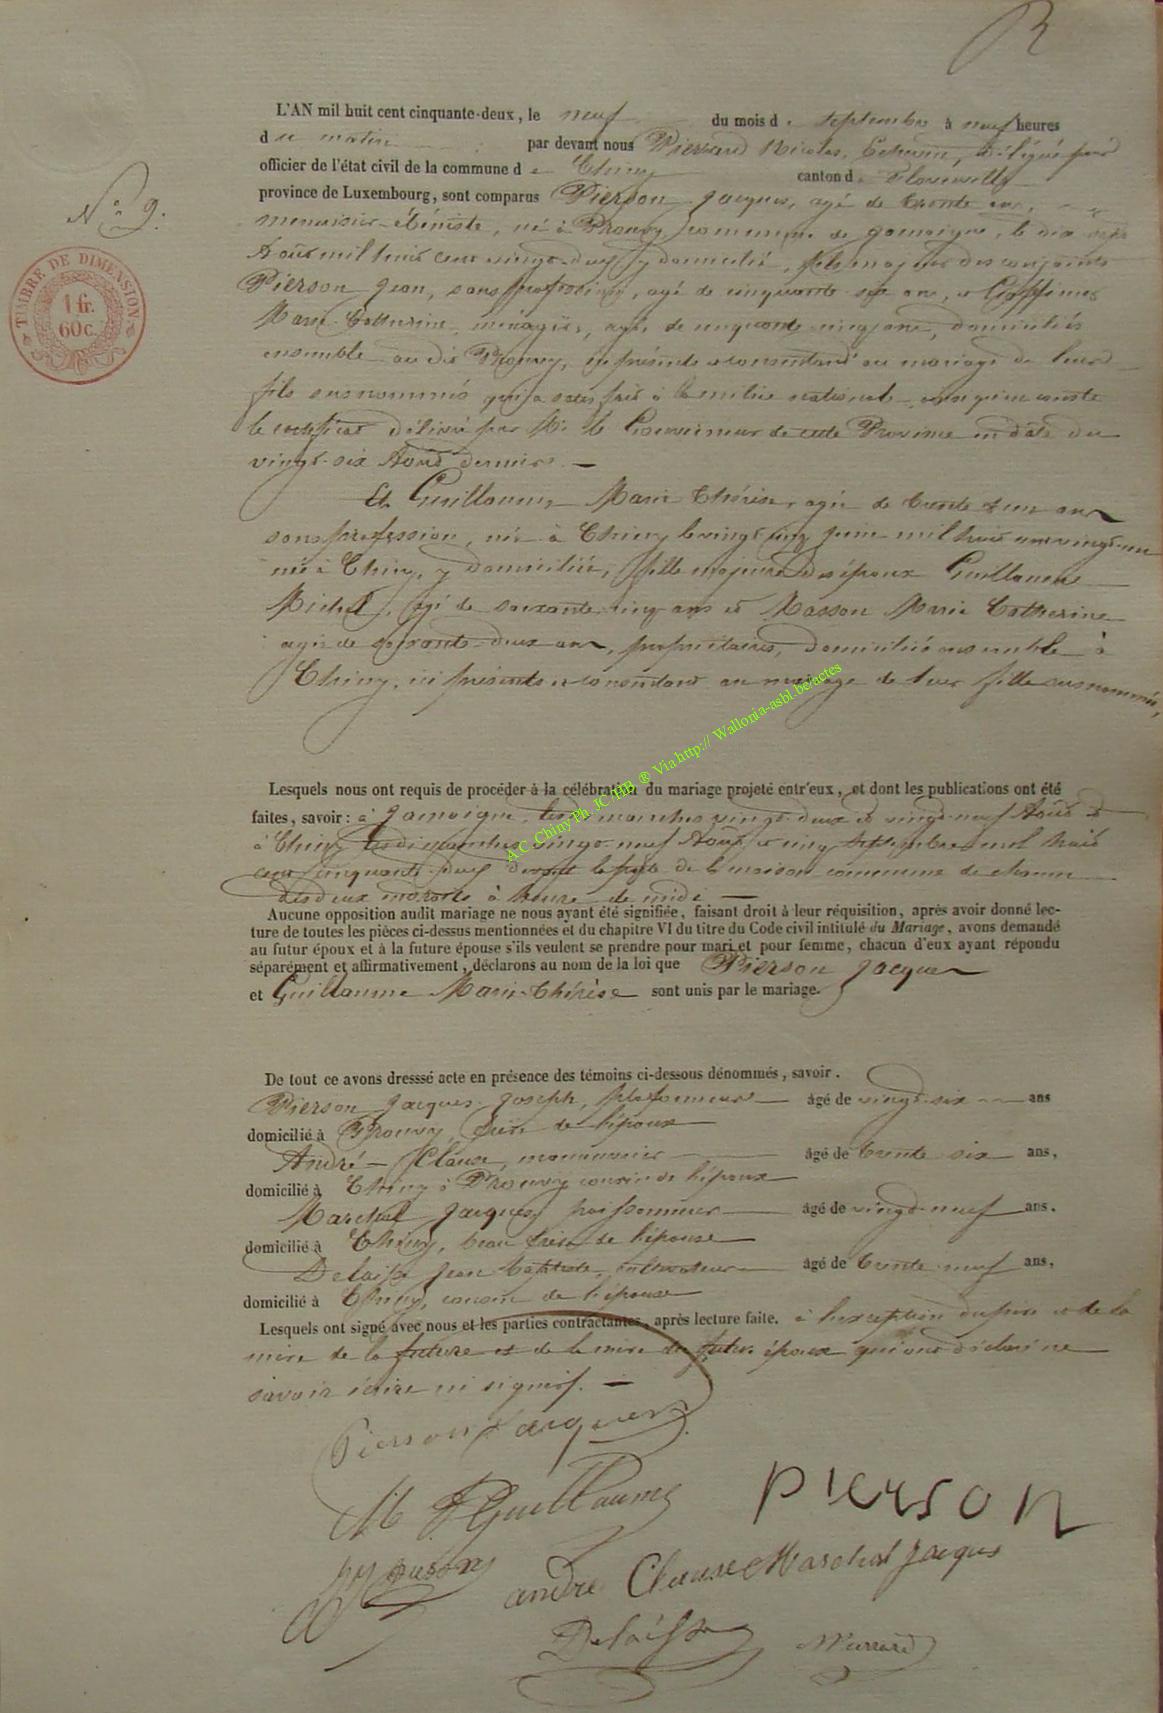 R
L'AN mil huit cent cinquante-deux, le neuf du mois de septembre à neuf heures
du matin par devant nous Pierrard Nicolas, Echevin, délégué pour
officier de l'état civil de la commune de Chiny canton de Florenville
N° 9.
province de Luxembourg, sont comparus Pierson Jacques, agé de trente ans,
menuisier-ébéniste, né à Prouvy commune de Jamoigne, le dix sept
Août mil huit cent vingt-deux y domicilié, fils majeur des conjoints
TIMBRE DE DIMENSION 1 fr. 60 c.
Pierson Jean, sans profession, agé de cinquante six ans, et
Marie Catherine, ménagère, agée de cinquante cinq ans, domiciliés
ensemble au dit Prouvy, ici présents et consentant au mariage de leur
fils susnommé qui a satisfait à la milice nationale ainsi que le constate
le certificat délivré par Mr le Gouverneur de cette Province en date du
vingt-six Août dernier. —
Et Guillaume Marie Thérèse, agée de trente et un ans
sans profession, née à Chiny le vingt cinq juin mil huit cent vingt-un
née à Chiny, y domiciliée, fille majeure des époux Guillaume
Michel, agé de soixante cinq ans et Masson Marie Catherine
agée de soixante-deux ans, propriétaires, domiciliés ensemble à
Chiny, ici présents et consentant au mariage de leur fille susnommée,
A.C. Chiny Ph. JC. HB ® Via http:// Wallonia-asbl.be/actes
Lesquels nous ont requis de procéder à la célébration du mariage projeté entr'eux, et dont les publications ont été
faites, savoir : à Jamoigne, les dimanches vingt-deux et vingt-neuf Août et
à Chiny les dimanches vingt-neuf Août et cinq septembre mil huit
cent cinquante-deux devant la porte de la maison commune de chacun
des deux endroits à heure de midi —
Aucune opposition audit mariage ne nous ayant été signifiée, faisant droit à leur réquisition, après avoir donné lec-
ture de toutes les pièces ci-dessus mentionnées et du chapitre VI du titre du Code civil intitulé du Mariage, avons demandé
au futur époux et à la future épouse s'ils veulent se prendre pour mari et pour femme, chacun d'eux ayant répondu
séparément et affirmativement, déclarons au nom de la loi que Pierson Jacques
et Guillaume Marie-Thérèse sont unis par le mariage.
De tout ce avons dresssé acte en présence des témoins ci-dessous dénommés, savoir.
Pierson Jacques Joseph, plafonneur âgé de vingt-six ans
domicilié à Prouvy, frère de l'époux
André Clause, manouvrier âgé de trente six ans,
domicilié à Chiny à Prouvy cousin de l'époux
Marchal Jacques, poissonnier âgé de vingt-neuf ans.
domicilié à Chiny, beau frère de l'épouse
Delaisse Jean Baptiste, cultivateur âgé de trente neuf ans,
domicilié à Chiny, cousin de l'épouse
Lesquels ont signé avec nous et les parties contractantes, après lecture faite. à l'exception du père et de la
mère de la future et de la mère du futur époux qui ont déclaré ne
savoir écrire ni signer. —
Pierson Jacques
M T Guillaume
Pierson
JJ Pierson
andre Clause Marchal Jacques
Delaisse